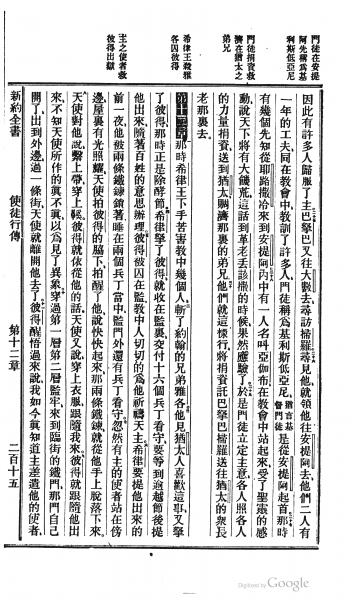 門徒在安提
阿先稱爲基
利斯低亞尼
門徒捐資救
濟在猶太之
弟兄
希律王殺雅
各囚彼得
主之使者救
彼得出獄
因此有許多人歸服了主巴拏巴又往大數去尋訪掃羅尋見他就領他往安提阿去他們二人有
一年的工夫同在敎會中敎訓了許多人門徒稱爲基利斯低亞尼猶言基督門徒是從安提阿起首那時
有幾個先知從耶路撒冷來到安提阿內中有一人名呌亞伽布在敎會中站起來受了聖靈的感
動說天下將有大饑荒這話到革老丟該撒的時候果然應驗了於是門徒立定主意各人照各人
的力量捐資送到猶太賙濟那裏的弟兄他們就這樣行將捐資託巴拏巴掃羅送往猶太的衆長
老那裏去
第十二章那時希律王下手苦害敎中幾個人斬了約翰的兄弟雅各他見猶太人喜歡這事又拏
了彼得那時正是除酵節希律拏了彼得就收在監裏交付十六個兵丁看守要等到逾越節後提
他出來隨著百姓的意思辦理彼得被囚在監敎中人切切的爲他祈禱天主希律要提他出來的
前一夜他被兩條鐵鍊鎖著睡在兩個兵丁當中監門外還有兵丁看守忽然有主的使者站在傍
邊屋裏有光照耀天使拍彼得的脇下拍醒了他說快快起來那兩條鐵鍊就從他手上脫落下來
天使對他說繫上帶穿上鞋彼得就依從他的話天使又說穿上衣服跟隨我來彼得就跟隨他出
來不知天使所作的眞不眞以爲見了異象穿過第一層第二層監牢來到臨街的鐵門那門自己
開了出到外邊過一條街天使就離開他去了彼得醒悟過來說我如今眞知道主差遣他的使者
新約全書 使徒行傳 第十二章 二百十五
Digitized by Google